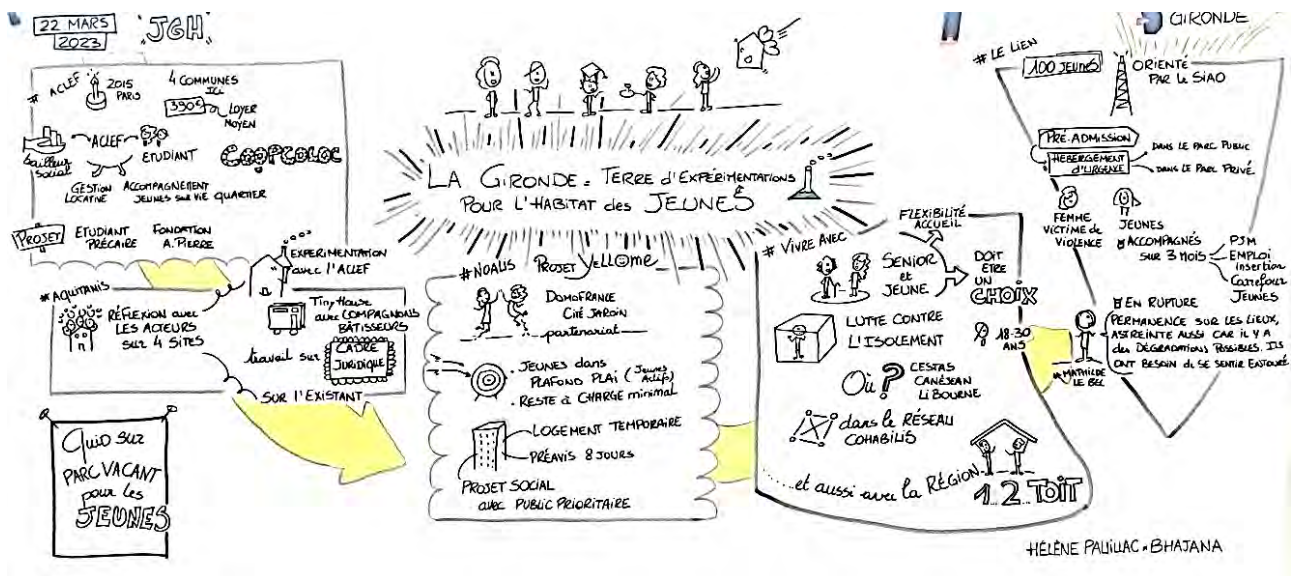 22 MARS
2023
"JGH"
# ACLEF
2015
PARIS
4 COMMUNES
ICI
390€
LOYER
MOYEN
Bailleur
Social
ACLEF
ETUDIANT
COOPCOLOC
GESTION
LOCATIVE
ACCOMPAGNEMENT
JEUNES sur VIE QUARTIER
PROJET
ETUDIANT
PRÉCAIRE
FONDATION
A. PIERRE
EXPERIMENTATION
avec l'ACLEF
#AQUITANIS
RÉFLEXION avec
LES ACTEURS
SUR 4 SITES
Tiny House
avec COMPAGNONS
BÂTISSEURS
travail sur
CADRE
JURIDIQUE
SUR l'EXISTANT
Quid sur
PARC VACANT
pour les
JEUNES
LA GIRONDE = TERRE d'EXPÉRIMENTATIONS
POUR L'HABITAT des JEUNES
#NOALIS
PROJET Yellome
DOMOFRANCE
Cité JARDIN
partenariat
. JEUNES dans
PLAFOND PLAI (Jeunes
Actifs)
. RESTE à CHARGE minimal
LOGEMENT TEMPORAIRE
PRÉAVIS 8 JOURS
PROJET SOCIAL
avec PUBLIC PRIORITAIRE
# VIVRE AVEC
FLEXIBILITÉ
ACCUEIL
SENIOR
et
JEUNE
DOIT
ÊTRE
UN
CHOIX
LUTTE CONTRE
L'ISOLEMENT
18-30
ANS
Où ?
CESTAS
CANÉJEAN
LIBOURNE
dans le RÉSEAU
COHABILIS
......et aussi avec la RÉGION
1.2..TOIT
GIRONDE
# LE LIEN
100 JEUNES
ORIENTÉ
PAR le SIAO
PRÉ-ADMISSION
HEBERGEMENT
d'URGENCE
DANS LE PARC PUBLIC
DANS LE PARC PRIVÉ
FEMME
VICTIME de
VIOLENCE
JEUNES
ACCOMPAGNÉS
SUR 3 MOIS
PJM
EMPLOI
insertion
Carrefour
JEUNES
EN RUPTURE
PERMANENCE SUR LES LIEUX,
ASTREINTE AUSSI CAR il Y A
des DÉGRADATIONS POSSIBLES. ILS
ONT BESOIN de SE SENTIR ENTOURÉ
#MATHILDE
LE BEL
HÉLÈNE PAUILLAC - BHAJANA